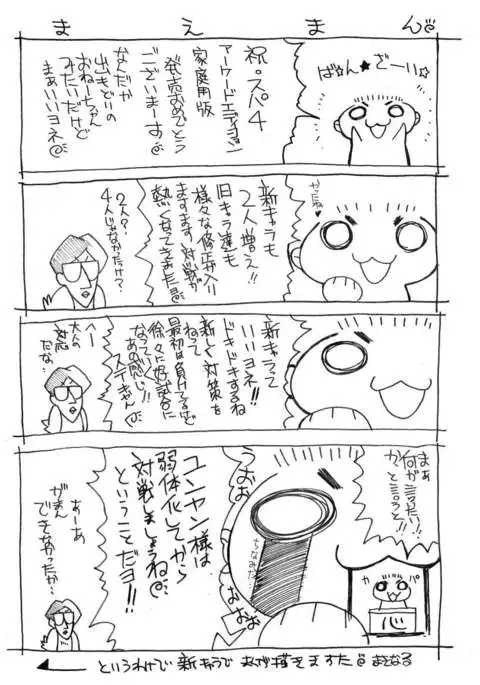 まえまん
ばん★ざーい☆
祝。スパ4
アーケードエディション
家庭用版
発売おめでとう
ございまーす
なんだか
出もどりの
おねーちゃん
みたいだけど
まぁいいヨネ
やったね♥
新キャラも
2人増え!!
旧キャラ達も
様々な修正が入り
ますます対戦が
熱くなってきましたね
2人?
4人じゃなかったけ?
新キャラって
いいヨネ!!
ドキドキするね
新しく対策を
ねって
最初は負けてるけど
徐々に好試合に
なってく
あの感じ!!
ステキやん
へー
大人の
対応
だな…
まぁ
何が言いたい!!
かと言うと!!
カパ
心
うおお
おおお
ちなみだ
ユンヤン様は
弱体化してから
対戦しましょうね
ということだヨ!!
あーあ
がまん
できなかったか…
というわけで新キャラで まんが描きますた